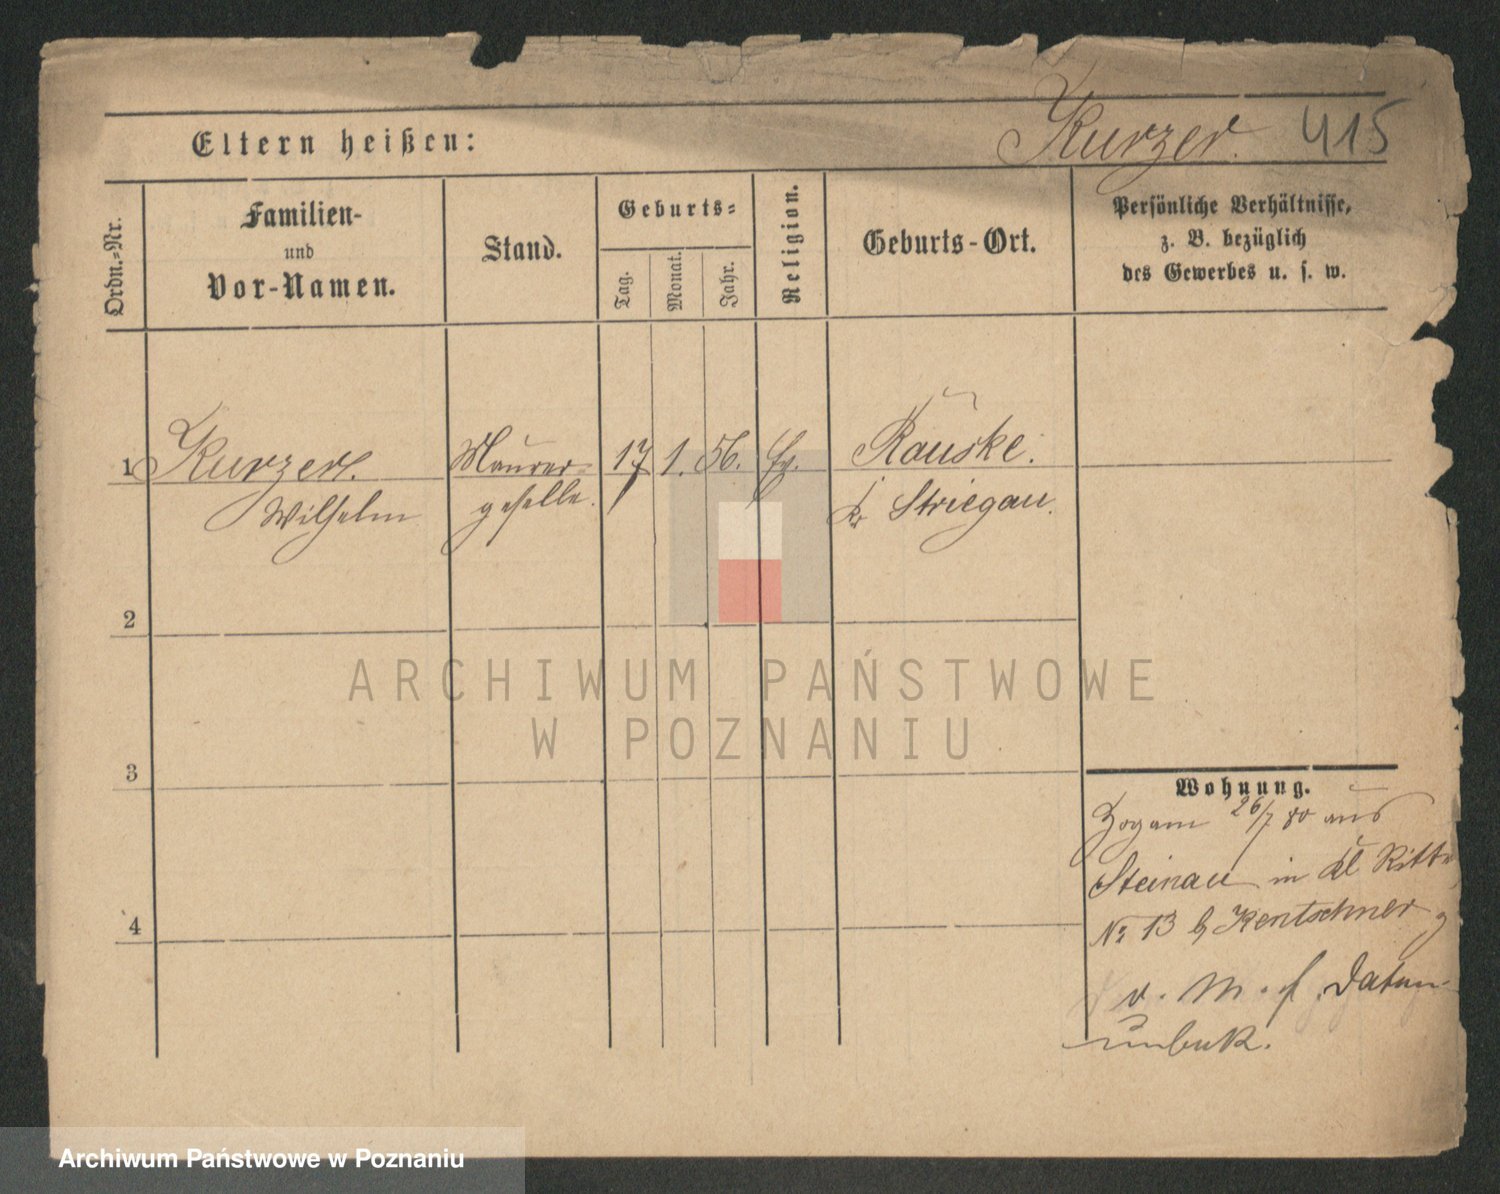 Eltern heißen:
Kurzer. 415
Ordn.-Nr.
Familien-
und
Vor-Namen.
Stand.
Geburts-
Tag.
Monat.
Jahr.
Religion.
Geburts-Ort.
Persönliche Verhältnisse,
z. B. bezüglich
des Gewerbes u. s. w.
1 Kurzer. Maurer- 17 1. 56. Ev. Rauske.
Wilhelm geselle. Kr Striegau.
2
3
4
Wohnung.
Zog am 26/7 80 aus
Steinau in Kl Ritter
No 13 b Kentschner
v. M. f. Datum
unbek.
ARCHIWUM PAŃSTWOWE
W POZNANIU
Archiwum Państwowe w Poznaniu